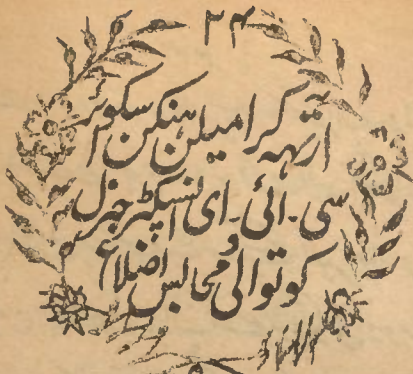 ۲۴
آرتھر کرامیلن ہنکن اسکوئر
سی۔ائی۔ای انسپکٹر جنرل
کوتوالی و محابس اضلاع